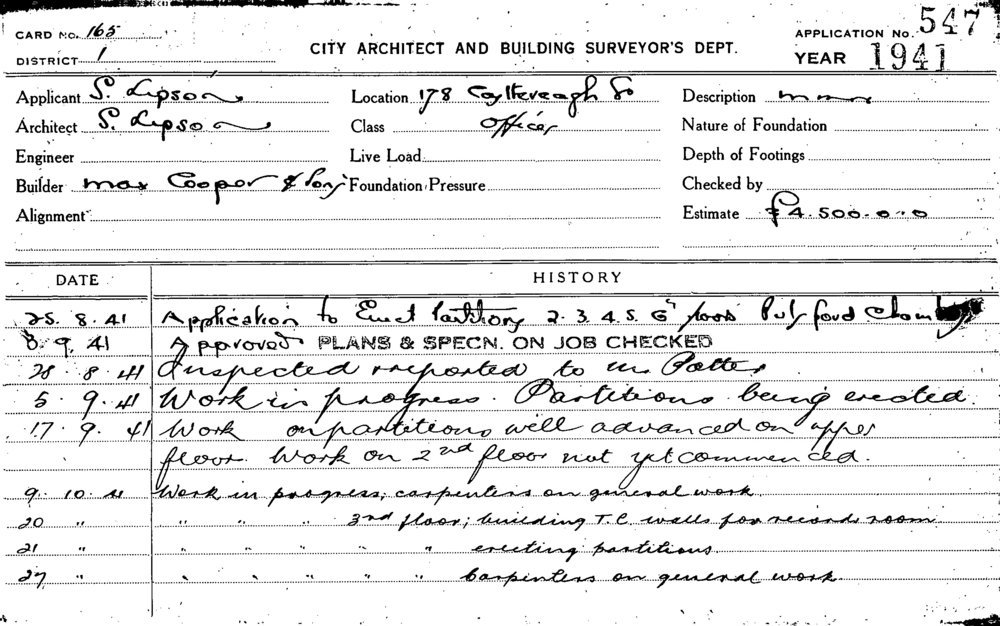 CARD No. 165
APPLICATION No. 547
DISTRICT 1
CITY ARCHITECT AND BUILDING SURVEYOR'S DEPT.
YEAR 1941
Applicant S. Lipson
Location 178 Castlereagh St
Description
Architect S. Lipson
Class Offices
Nature of Foundation
Engineer
Live Load
Depth of Footings
Builder Max Cooper & Sons
Foundation Pressure
Checked by
Alignment
Estimate £4.500.0.0
DATE HISTORY
25. 8. 41 Application to Erect Partitions 2. 3. 4. 5. 6" floors Pulsford Chambers
8. 9. 41 Approved PLANS & SPECN. ON JOB CHECKED
28. 8. 41 Inspected & reported to Mr Potter
5. 9. 41 Work in progress. Partitions being erected.
17. 9. 41 Work on partitions well advanced on upper
floor. Work on 2nd floor not yet commenced.
9. 10. 41 Work in progress; carpenters on general work.
20 " " " " 3rd floor; building T.C. walls for records room
21 " " " " " " erecting partitions.
27 " " " " " " Carpenters on general work.